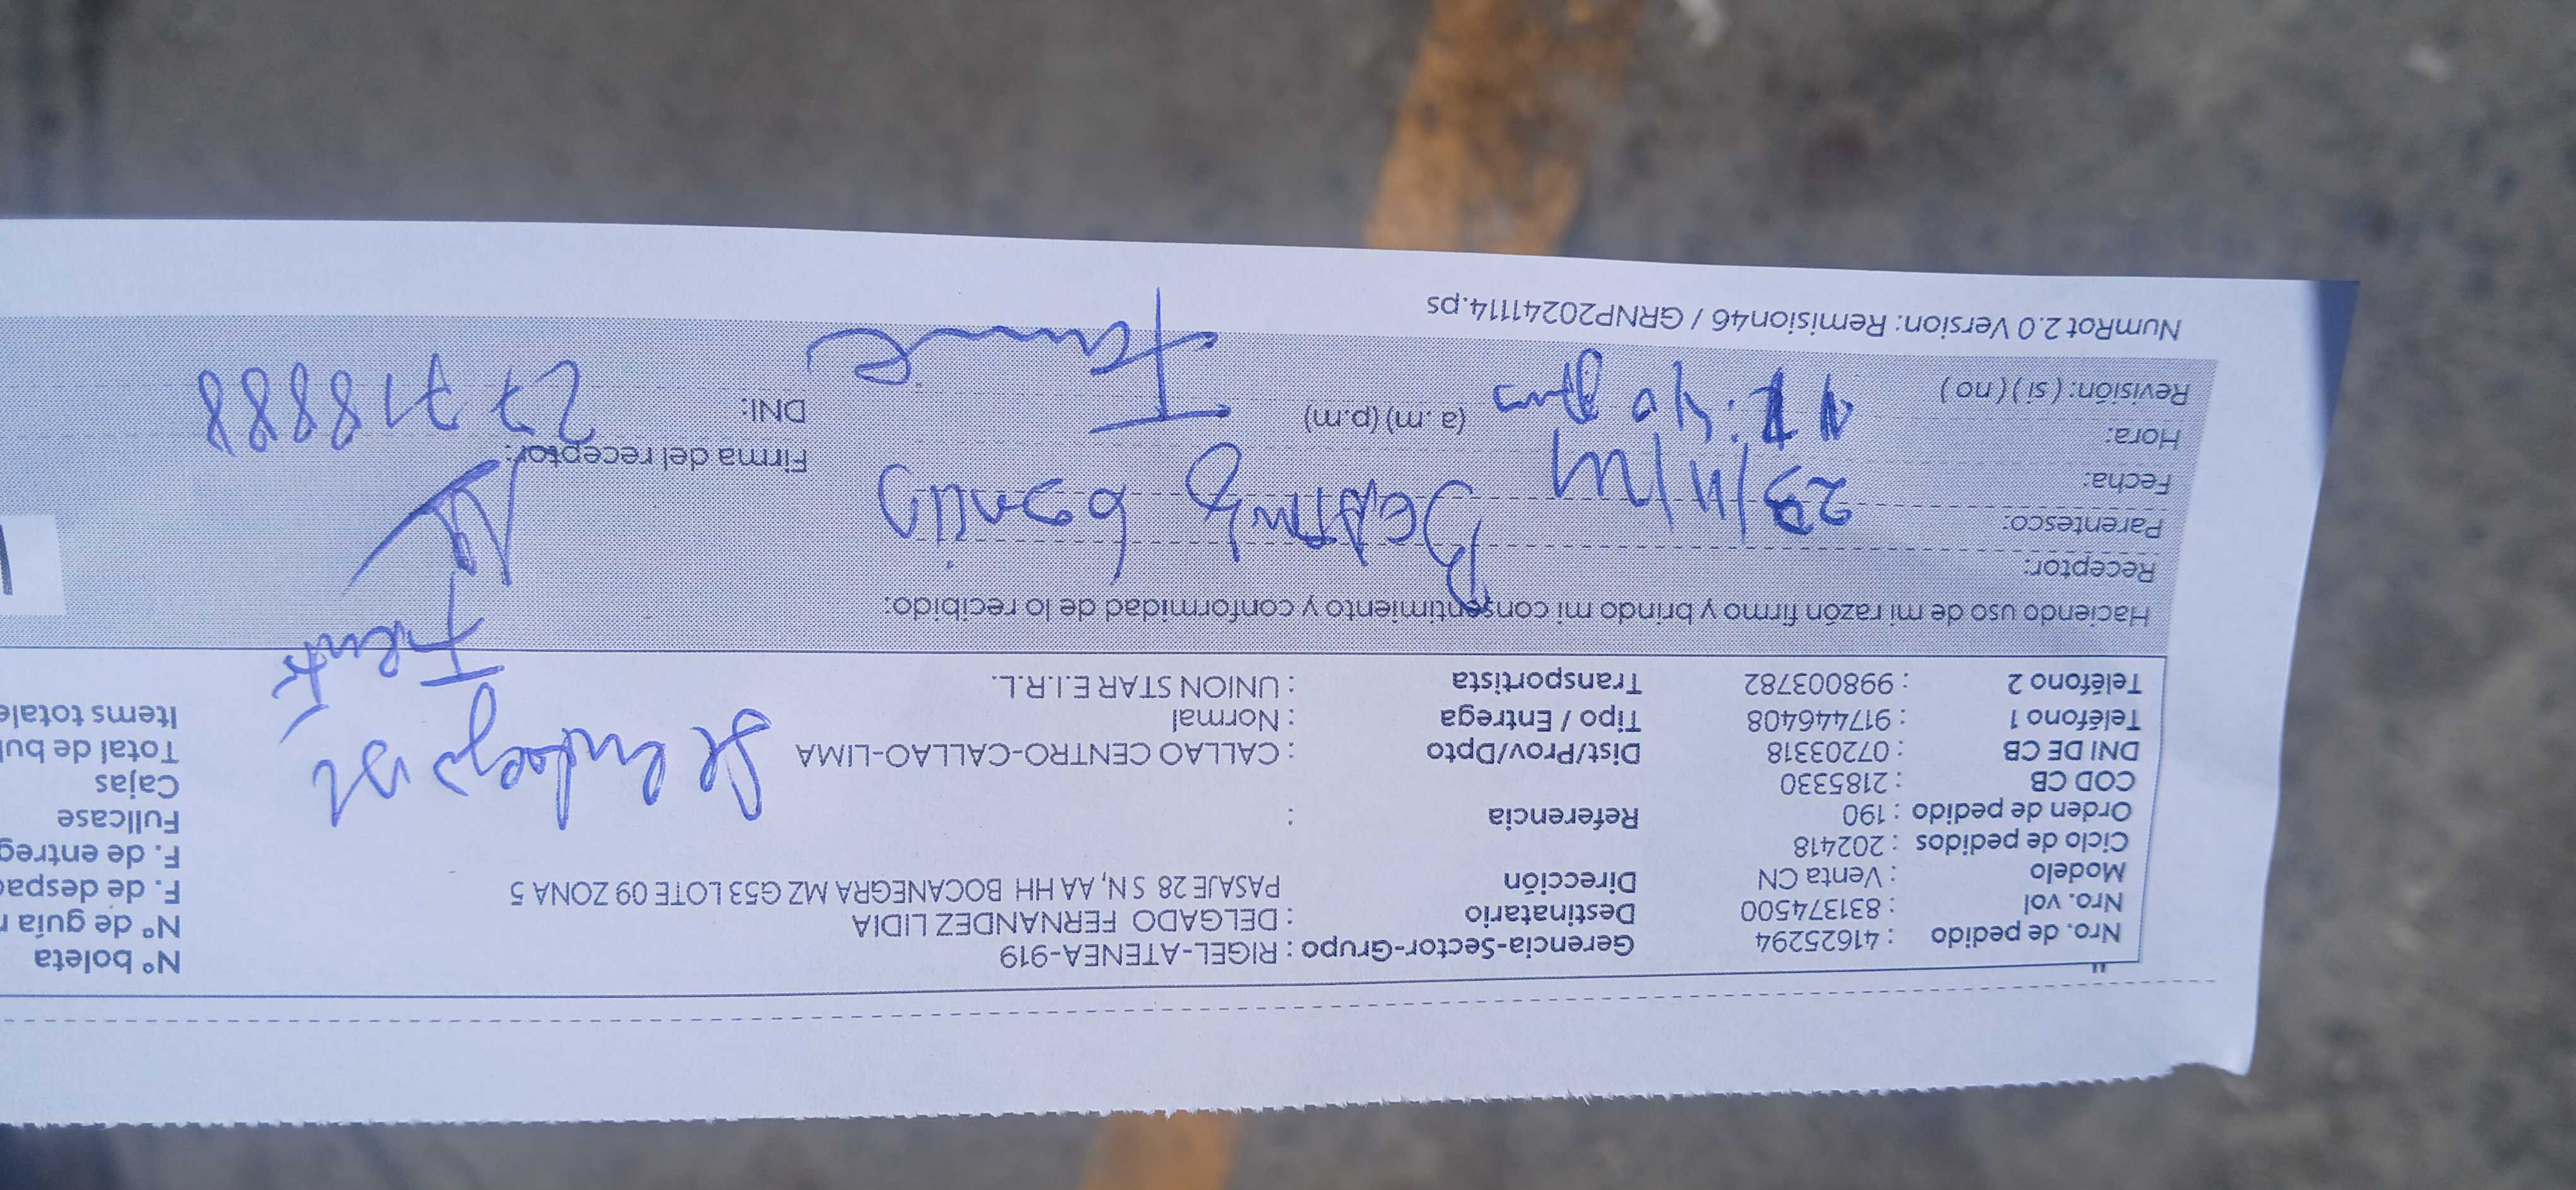 Nro. de pedido : 41625294 Gerencia-Sector-Grupo : RIGEL-ATENEA-919 N° boleta
Nro. vol : 831374500 Destinatario : DELGADO FERNANDEZ LIDIA N° de guía r
Modelo : Venta CN Dirección PASAJE 28 SN, AA HH BOCANEGRA MZ G53 LOTE 09 ZONA 5 F. de despac
Ciclo de pedidos : 202418 F. de entreg
Orden de pedido : 190 Referencia : Fullcase
COD CB : 2185330 Cajas
DNI DE CB : 07203318 Dist/Prov/Dpto : CALLAO CENTRO-CALLAO-LIMA Total de bul
Teléfono 1 : 917446408 Tipo / Entrega : Normal Items totale
Teléfono 2 : 998003782 Transportista : UNION STAR E.I.R.L.
Se
Frente
Haciendo uso de mi razón firmo y brindo mi consentimiento y conformidad de lo recibido:
Receptor:
Parentesco:
Fecha: 23/11/24
Firma del receptor:
Hora: (a. m) (p.m) DNI: 27718888
Revisión: ( si ) ( no )
NumRot 2.0 Version: Remision46 / GRNP20241114.ps